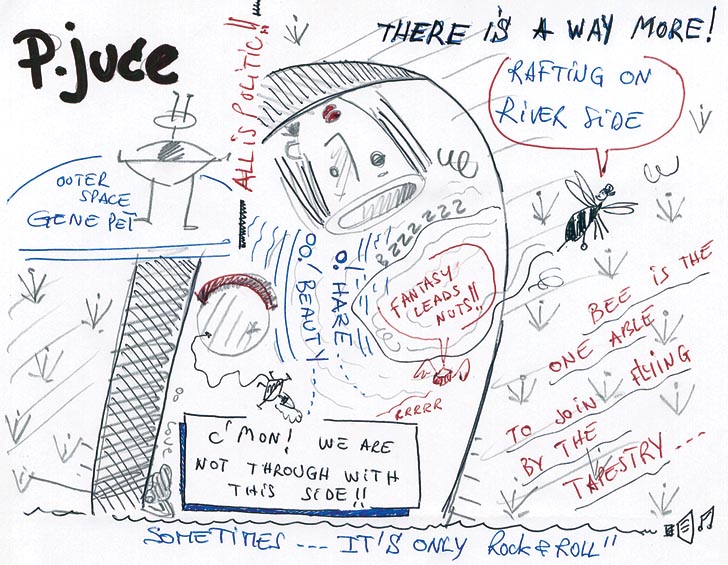 P.juce
ALL iS POLiTiC!!
THERE iS A WAY MORE!
RAFTING ON
RiVER SiDE
OOTER
SPACE
GENE PET
ZZZZZZZ
O! HARE
OO! BEAUTY
FANTASY
LEADS
NUTS!!
RRRRR
BEE iS THE
ONE ABLE
TO JOiN FLYiNG
BY THE
TAPESTRY ---
Love
C'MON! WE ARE
NOT THROUGH WiTH
THiS SiDE!!
SOMETiMES --- IT'S ONLY Rock & ROLL"